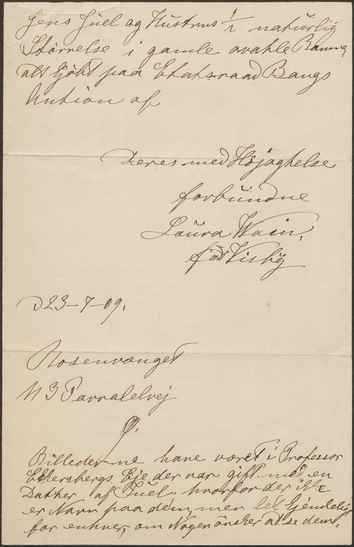 Jens Juel og Hustrus 1/2 naturlig
Størrelse i gamle ovale Ramme
alt kjøbt paa Etatsraad Bangs
Auktion af
Deres med Højagtelse
forbundne
Laura Wain,
fød Visby
d 23-7-09.
Rosenvænget
N 3 Parralelvej
Ø.
Billederne have været i Professor
Eckersbergs Eje der var gift med en
Datter af Juel hvorfor der ikke
er Navn paa dem men let kjendelig
for enhver, om Nogen ønsker at se dem.